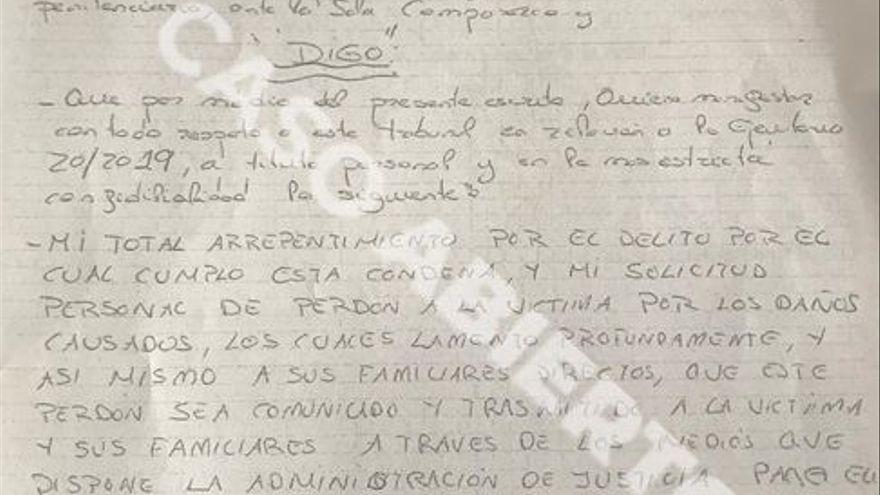 penitenciario, ante la Sala Comparezco y
"DIGO"
- Que por medio del presente escrito, Quiero manifestar
con todo respeto a este tribunal en relación a la Ejecutoria
20/2019, a titulo personal y en la mas estricta
confidencialidad lo siguiente:
- MI TOTAL ARREPENTIMIENTO POR EL DELITO POR EL
CUAL CUMPLO ESTA CONDENA, Y MI SOLICITUD
PERSONAL DE PERDON A LA VICTIMA POR LOS DAÑOS
CAUSADOS, LOS CUALES LAMENTO PROFUNDAMENTE, Y
ASI MISMO A SUS FAMILIARES DIRECTOS, QUE ESTE
PERDÓN SEA COMUNICADO Y TRASMITIDO A LA VICTIMA
Y SUS FAMILIARES A TRAVES DE LOS MEDIOS QUE
DISPONE LA ADMINISTRACIÓN DE JUSTICIA PARA EL
CASO ABIERTO